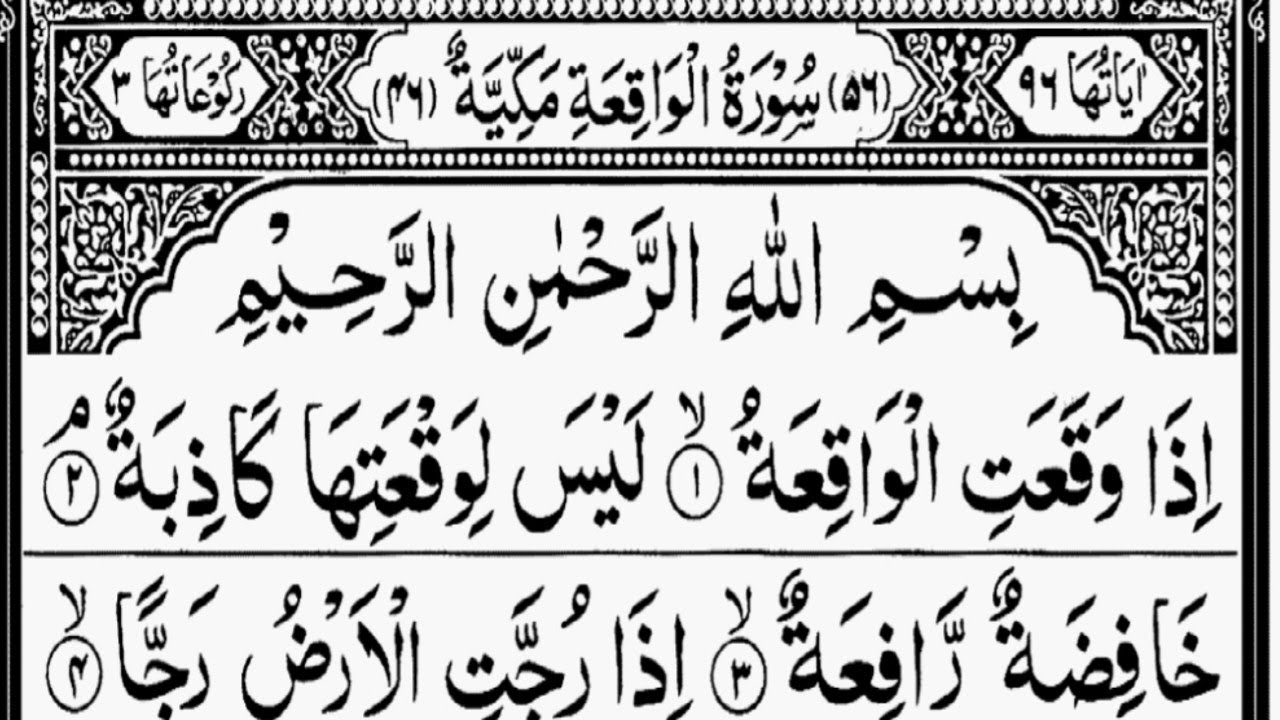 اٰيَاتُهَا ٩٦ (٥٦) سُوْرَةُ الْوَاقِعَةِ مَكِّيَّةٌ (٤٦) رُكُوْعَاتُهَا ٣
بِسْمِ اللّٰهِ الرَّحْمٰنِ الرَّحِيْمِ
اِذَا وَقَعَتِ الْوَاقِعَةُ ۙ ١ لَيْسَ لِوَقْعَتِهَا كَاذِبَةٌ ۘ ٢
خَافِضَةٌ رَّافِعَةٌ ۙ ٣ اِذَا رُجَّتِ الْاَرْضُ رَجًّا ۙ ٤